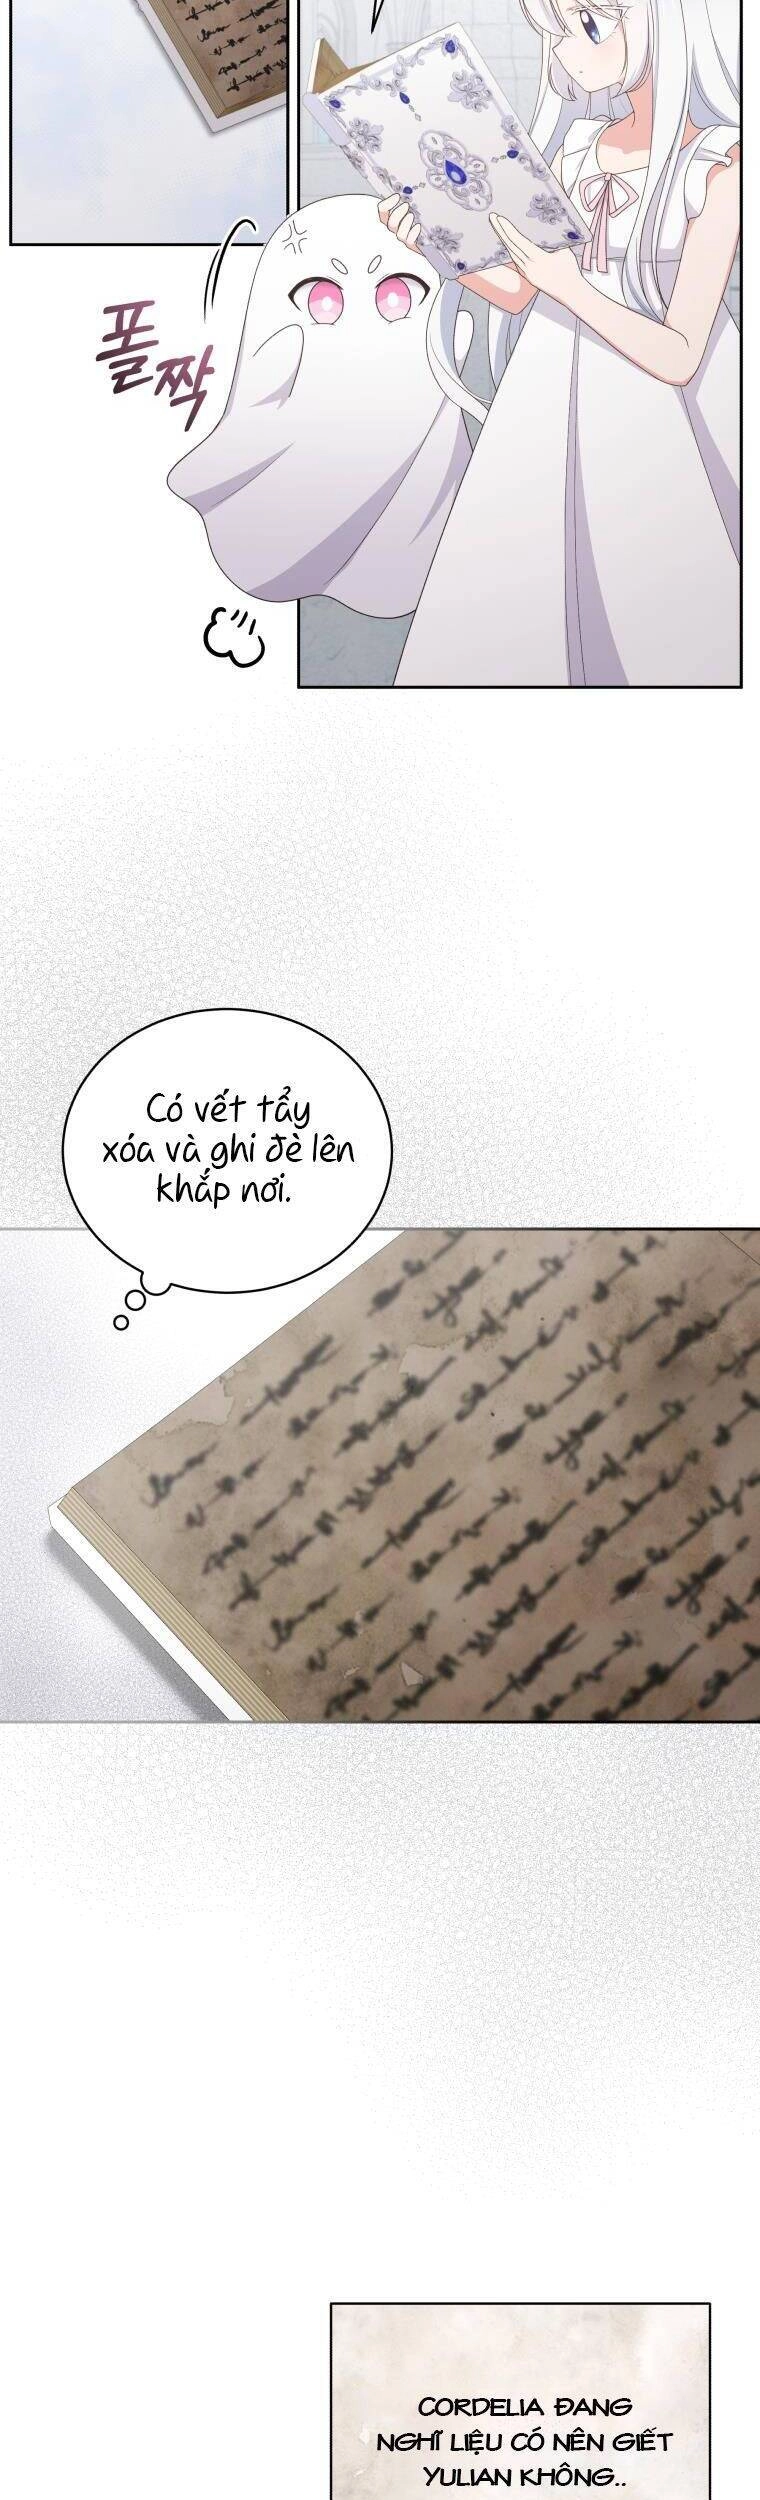 폴짝
Có vết tẩy
xóa và ghi đè lên
khắp nơi.
CORDELIA ĐANG
NGHĨ LIỆU CÓ NÊN GIẾT
YULIAN KHÔNG..